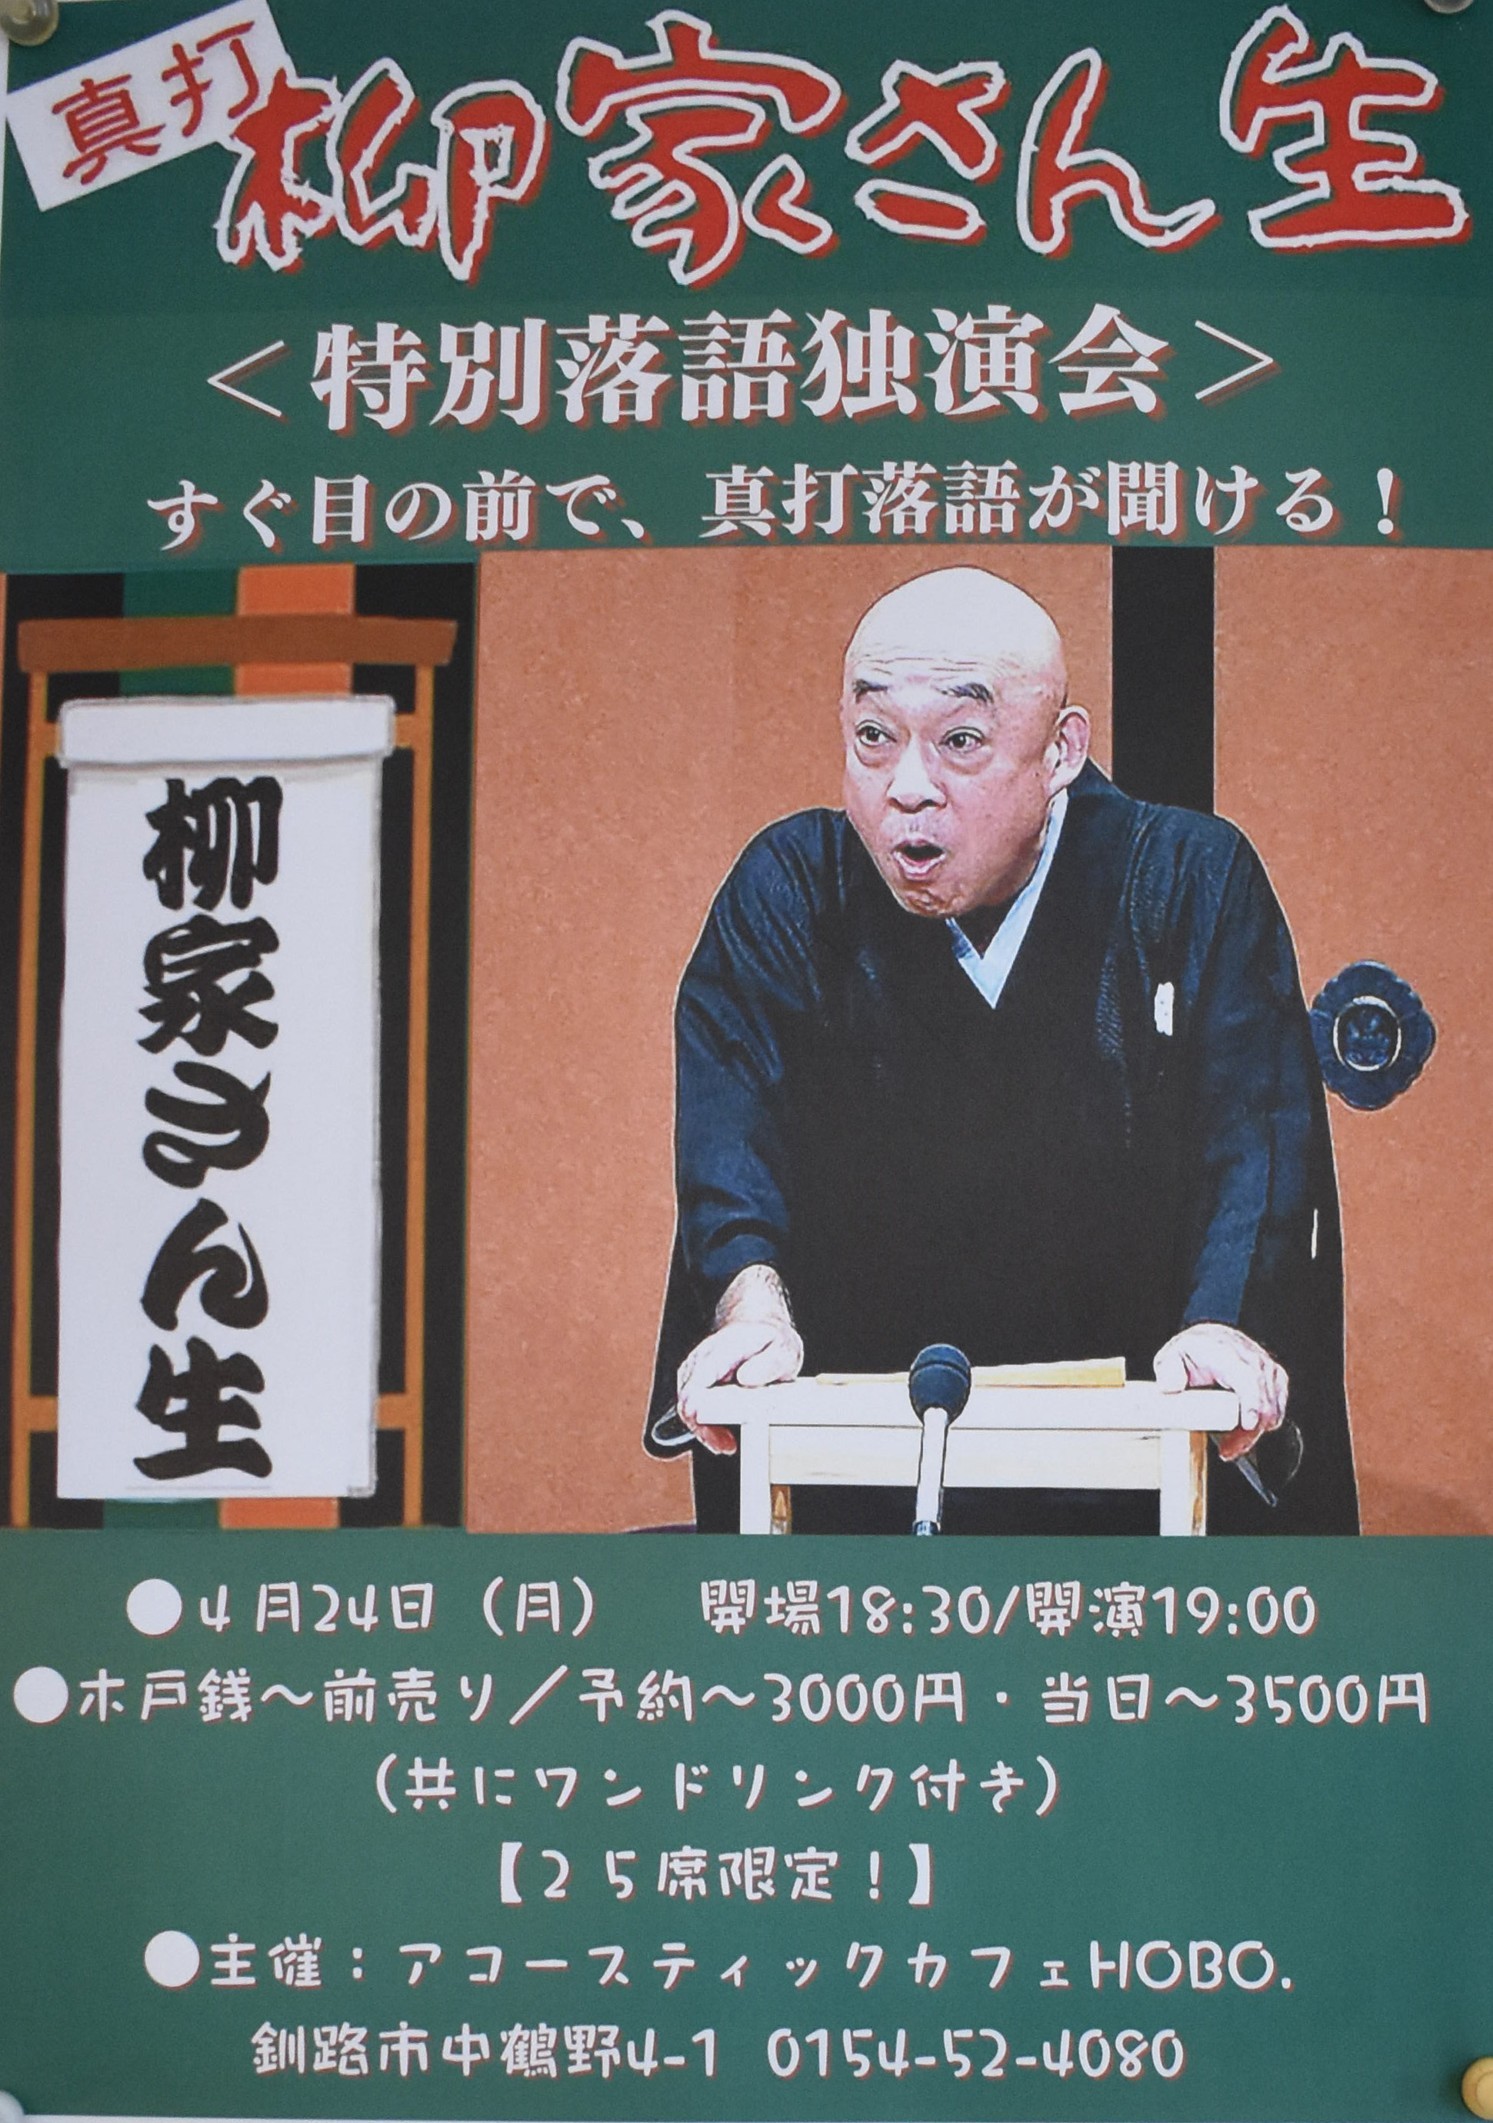 真打
柳家さん生
＜特別落語独演会＞
すぐ目の前で、真打落語が聞ける！
柳家さん生
●4月24日（月）　開場18:30/開演19:00
●木戸銭～前売り／予約～3000円・当日～3500円
(共にワンドリンク付き)
【25席限定！】
●主催：アコースティックカフェHOBO.
釧路市中鶴野4-1　0154-52-4080